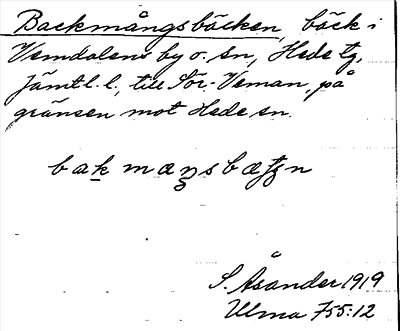 Backmångsbäcken, bäck i
Vemdalens by o. sn, Hede tg,
Jämtl. l., till Sör-Veman, på
gränsen mot Hede sn.
bak mæŋsbæʈʂn
S. Åsander 1919
Ulma 755:12